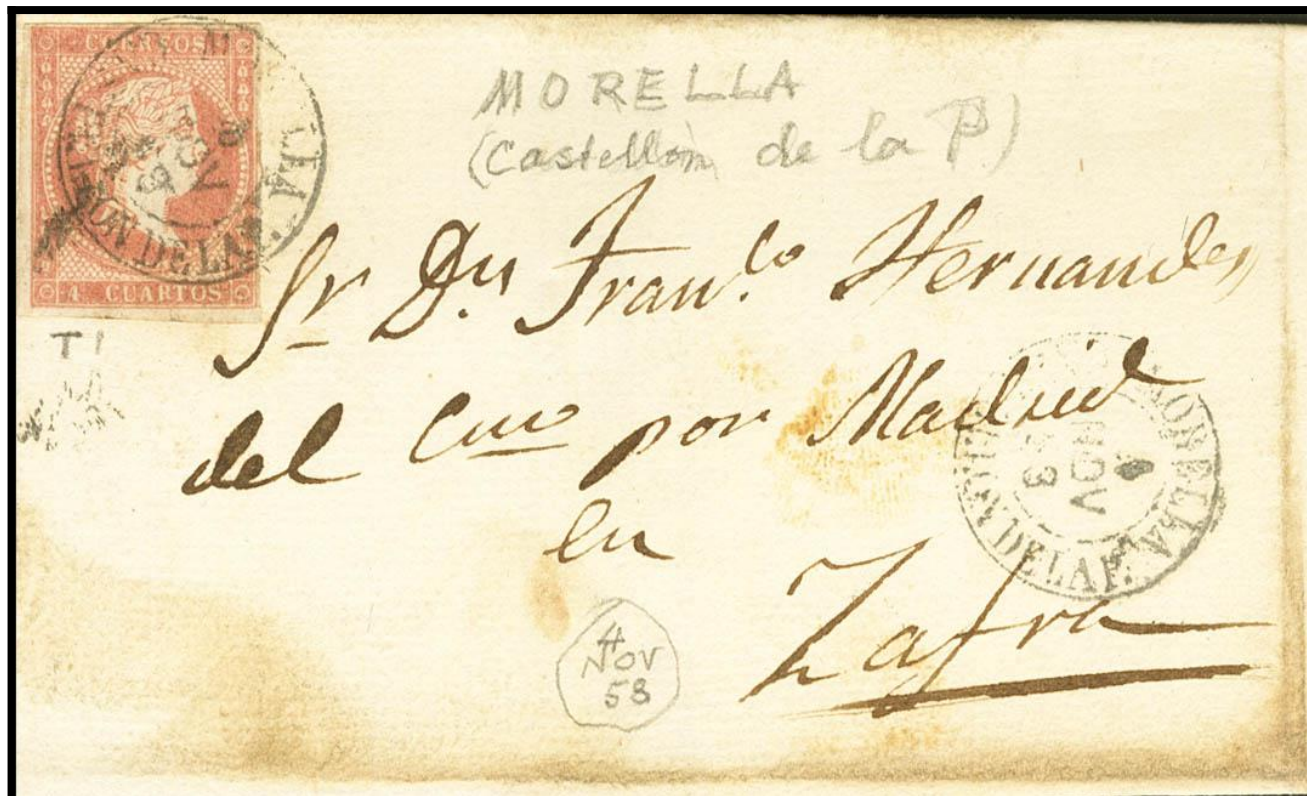 CORREOS
4 CUARTOS
MORELLA
(Castellón de la P)
Sr Dn Franco Hernandez
del Cmo por Madrid
en
Zafra
T I
MORELLA
NOV
58
DE LA P.
4
NOV
58